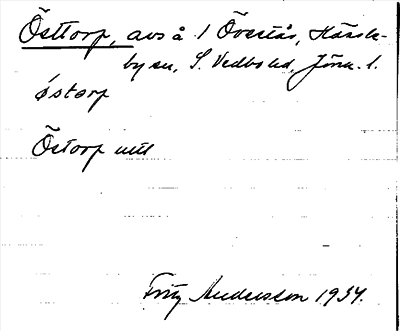 Östtorp, avs å 1 Överås, Hässle-
by sn, S. Vedbo hd, Jönk. l.
östorp
Östorp utt
Fritz Andersson 1934.